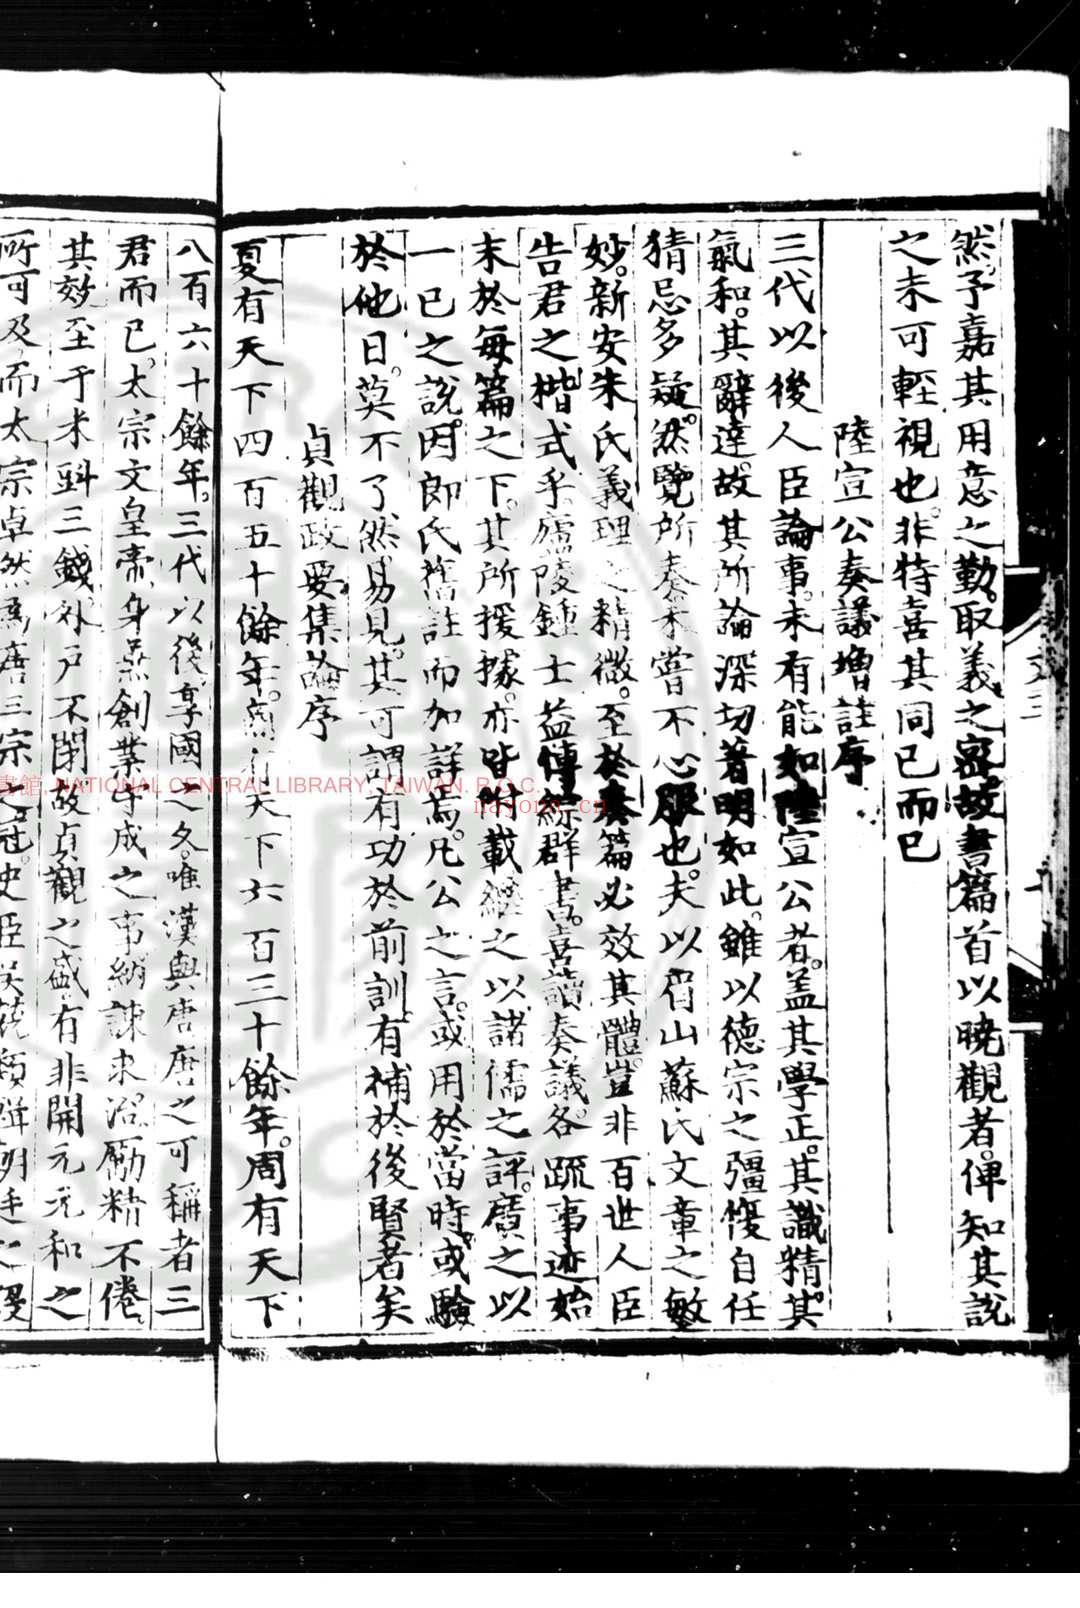 然予嘉其用意之勤取義之密故書篇首以曉觀者俾知其說
之未可輕視也非特喜其同已而已
陸宣公奏議增註序
三代以後人臣論事未有能如陸宣公者蓋其學正其識精其
氣和其辭達故其所論深切著明如此雖以德宗之彊愎自任
猜忌多疑然覽所奏未嘗不心服也夫以眉山蘇氏文章之敏
妙新安朱氏義理之精微至於奏篇必效其體豈非百世人臣
告君之楷式乎廬陵鍾士益傳綜群書喜讀奏議各疏事迹始
末於每篇之下其所援據亦皆附載纘之以諸儒之評廣之以
一已之說因郎氏舊註而加詳焉凡公之言或用於當時或驗
於他日莫不了然易見其可謂有功於前訓有補於後賢者矣
貞觀政要集論序
夏有天下四百五十餘年商有天下六百三十餘年周有天下
八百六十餘年三代以後享國之久唯漢與唐唐之可稱者三
君而已太宗文皇帝身兼創業守成之事納諫求治勵精不倦
其效至于米斗三錢外戶不閉故貞觀之盛有非開元元和之
所可及而太宗卓然為唐三宗之冠史臣吳兢類輯朝廷之
文三
NATIONAL CENTRAL LIBRARY, TAIWAN. R.O.C.
nayona.cn